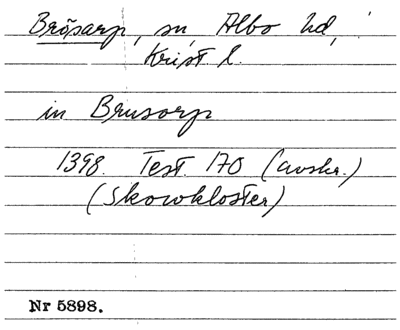 Brösarp, sn, Albo hd,
Krist. l.
in Brusorp
1398. Test. 170 (avskr.)
(Skowkloster)
Nr 5898.